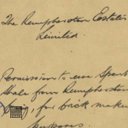 The Kemphurston Estates
Limited
Permission to use Spent
Shale from Kemphurston
for brick making
purposes